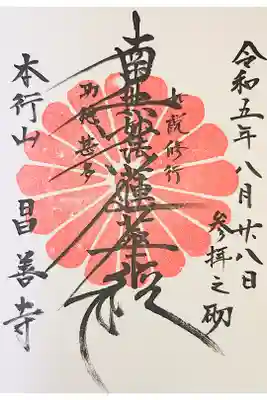 令和五年八月廿八日
参拝之砌
如説修行
南無妙法蓮華経
功徳甚多
本行山 昌善寺